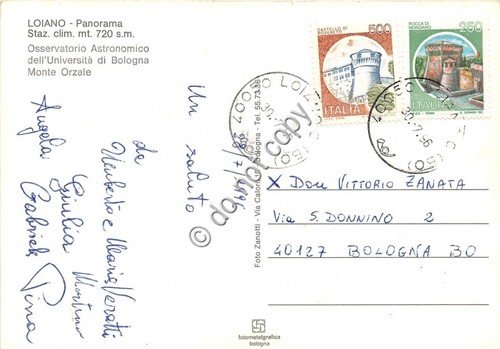 LOIANO - Panorama
Staz. clim. mt. 720 s.m.
Osservatorio Astronomico
dell'Università di Bologna
Monte Orzale
Un saluto
da
Umberto e Maria Veratti
Giulia Martino
Angela Gabriele Pina
Foto Zanotti - Via Calori Bologna - Tel. 55.73.36
500
ITALIA
ROCCA DI
MONTAVIO
250
ITALIA
40050 LOIANO (BO)
30.7.96
40050 LOIANO (BO)
30.7.96
do not copy
X Don VITTORIO ZANATA
Via S. DONNINO 2
40127 BOLOGNA BO
fotometalgrafica
bologna